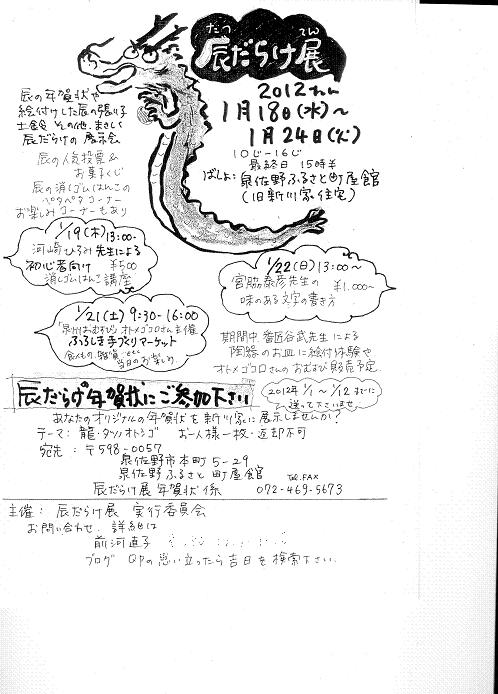 たつ てん
辰だらけ展
2012ねん
1月18日(水)〜
1月24日(火)
10じ-16じ
最終日 15時半
ばしょ: 泉佐野ふるさと町屋館
(旧新川家住宅)
辰の年賀状や
絵付けした辰の張り子
土鈴 その他、まさしく
辰だらけの展示会
辰の人気投票&
お菓子くじ
辰の消しゴムはんこの
ペタペタコーナー
お楽しみコーナーもあり
1/19(木)13:00-
河崎ひろみ先生による
初心者向け ¥500
消しゴムはんこ講座
1/22(日)13:00〜
宮脇泰彦先生の
¥1.000〜
味のある文字の書き方
1/21(土) 9:30-16:00
泉州おむすび オトメゴコロさん主催
ふるしき手づくりマーケット
食べもの、雑貨、etc
当日のお楽しみ
期間中、番匠谷武先生による
陶器のお皿に絵付け体験や
オトメゴコロさんのおむすび販売予定
辰だらけ年賀状にご参加下さい
2012年 1/1〜1/12までに
送って下さいませ
あなたのオリジナルの年賀状を新川家に展示しませんか?
テーマ: 龍・タツノオトシゴ お一人様一枚・返却不可
宛先: 〒598-0057
泉佐野市本町5-29
泉佐野ふるさと町屋館
辰だらけ展 年賀状係
TEL.FAX
072-469-5673
主催: 辰だらけ展 実行委員会
お問い合わせ、詳細は
前河直子
ブログ QPの思い立ったら吉日を検索下さい